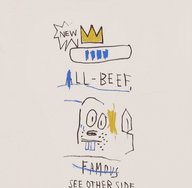 NEW
ALL-BEEF
FAMOUS
SEE OTHER SIDE